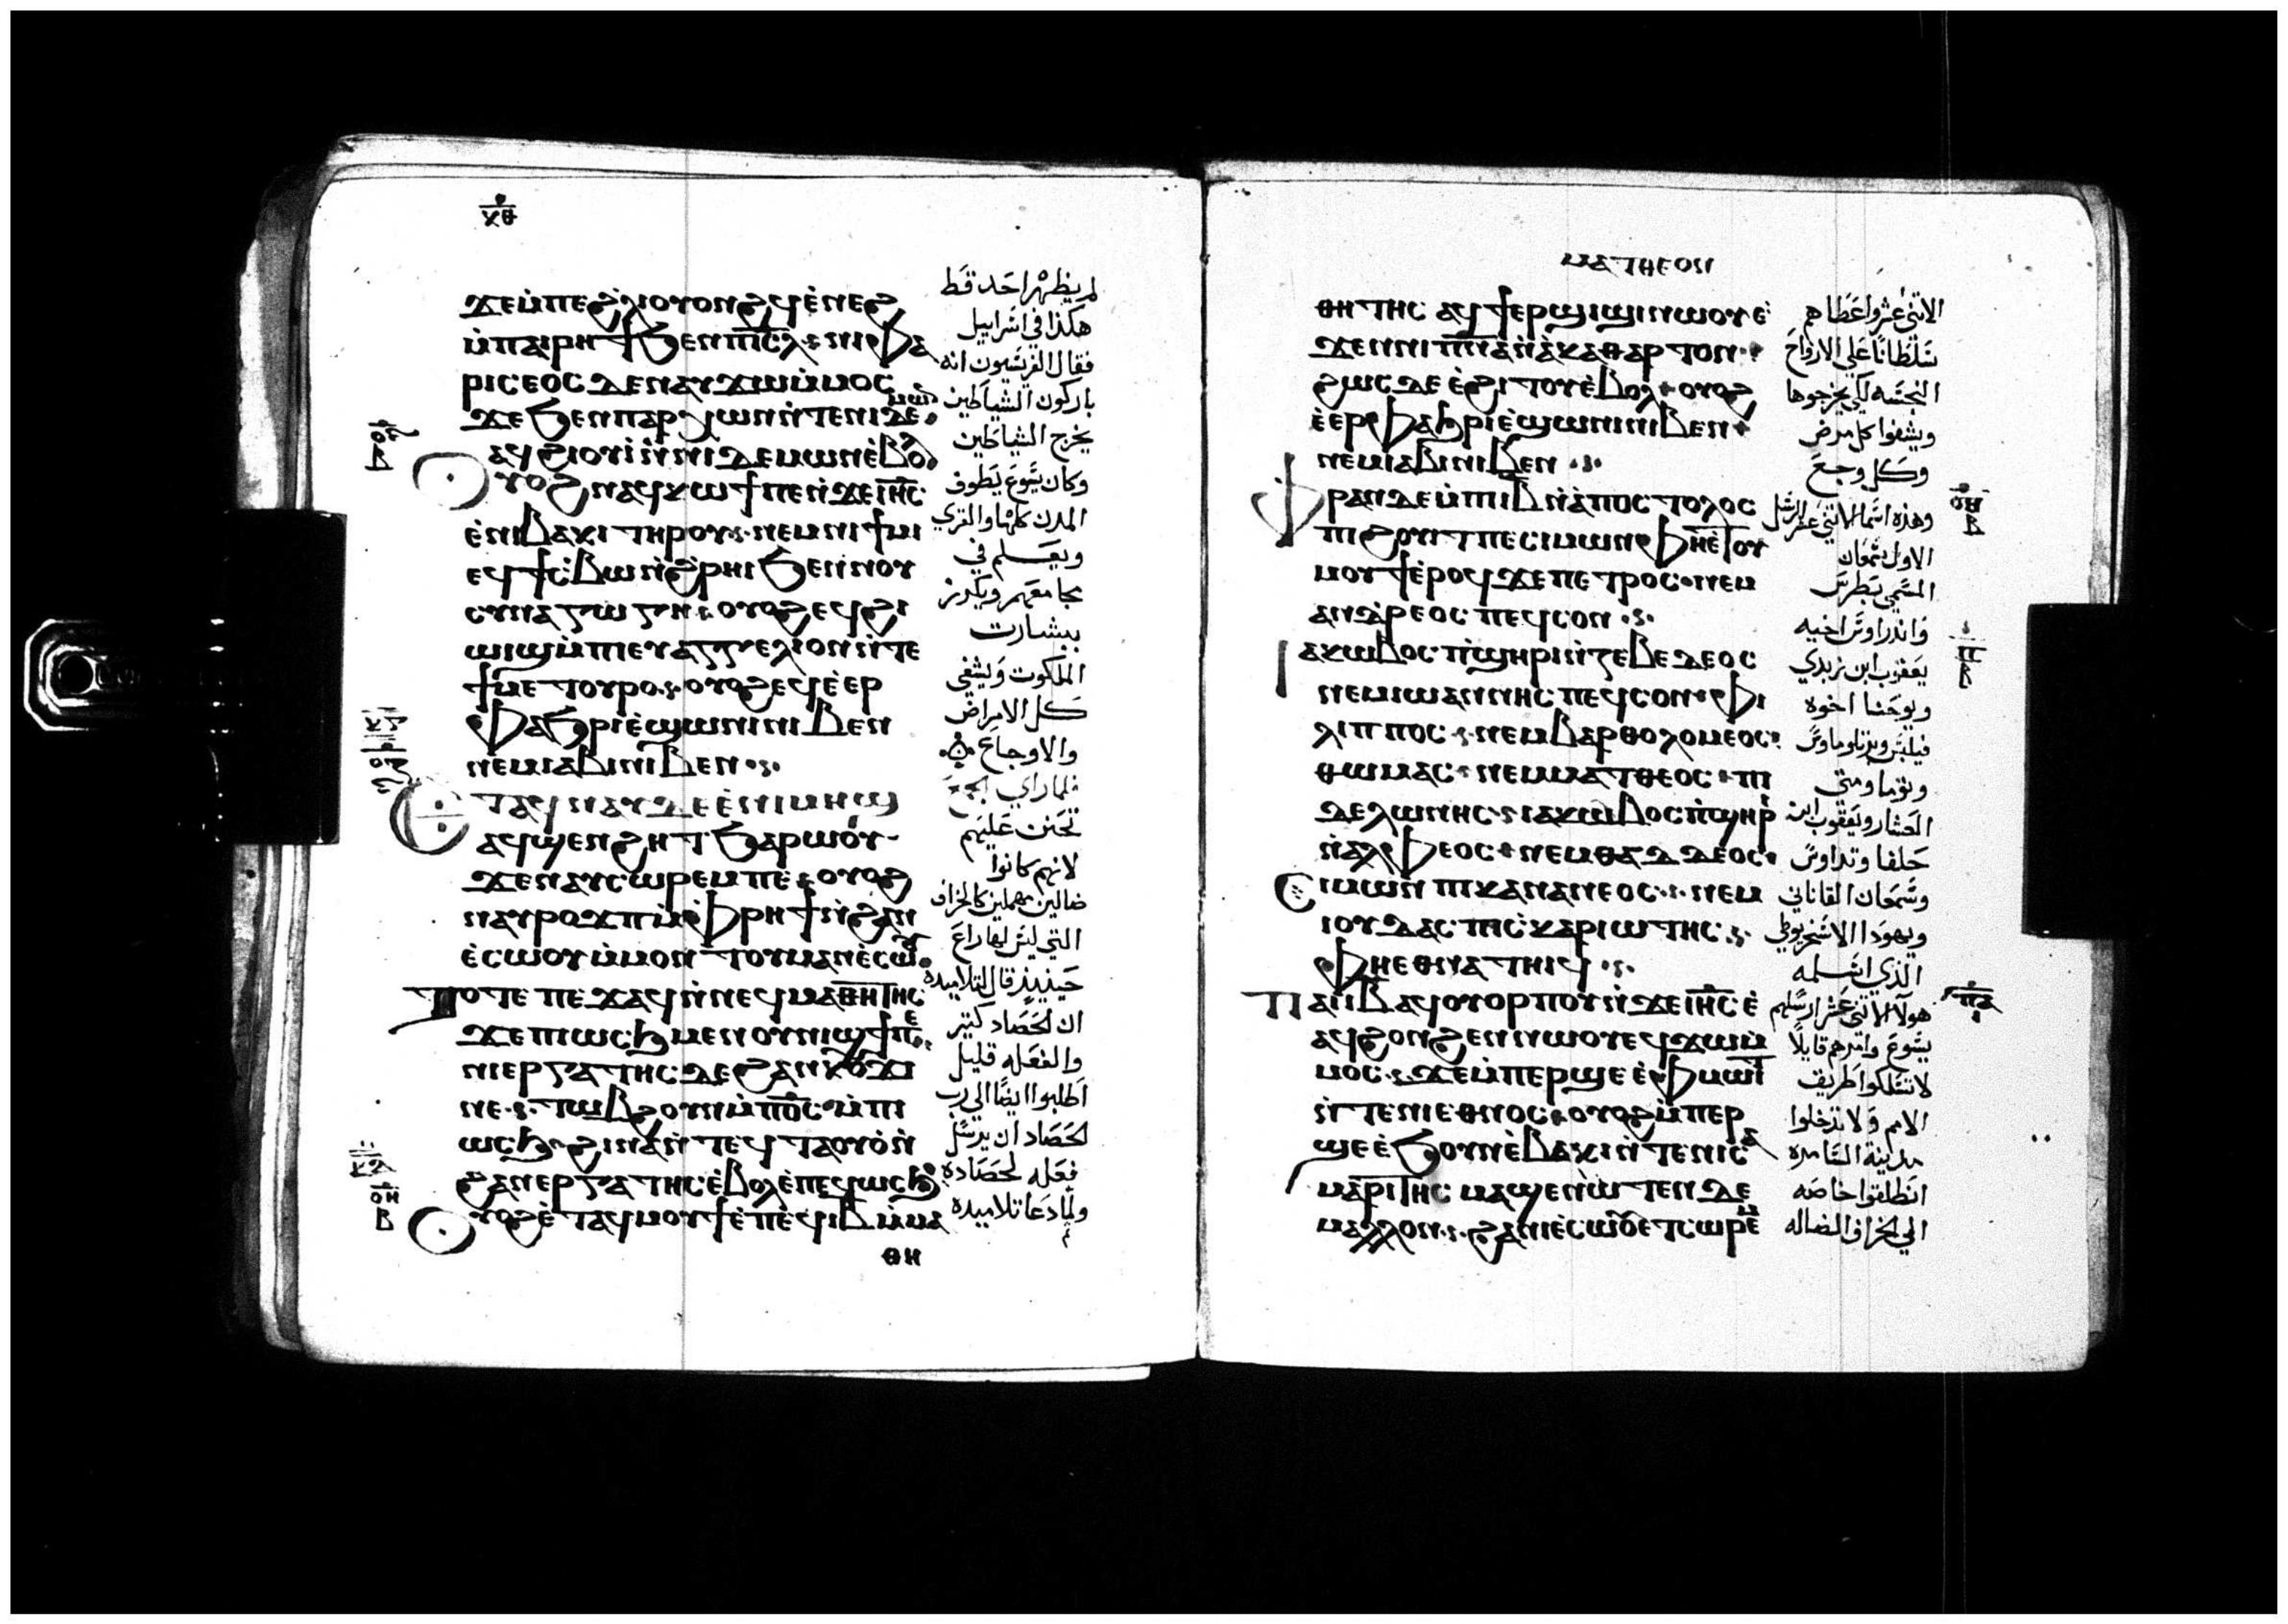 ⲕ̅ⲑ̅
ϫⲉⲙ̇ⲡⲉϩⲗⲓⲟⲩⲟⲛϩϥⲉ̇ⲛⲉϩ
ⲙ̇ⲡⲁⲓⲣⲏϯϧⲉⲛⲡⲓⲥ̅ⲗ̅ ⲛⲓⲫⲁ
ⲣⲓⲥⲉⲟⲥ ⲇⲉⲛⲁⲩϫⲱⲙ̇ⲙⲟⲥ
ϫⲉϧⲉⲛⲡⲁⲣⲭⲱⲛⲛ̇ⲧⲉⲛⲓⲇⲉⲙⲱⲛ
ⲁϥϩⲓⲟⲩⲓ̇ⲛ̇ⲛⲓⲇⲉⲙⲱⲛⲉ̇ⲃⲟⲗ
ⲟⲩⲟϩⲛⲁϥⲕⲱϯⲡⲉⲛ̇ϫⲉⲓⲏ̅ⲥ̅
ⲉ̇ⲛⲓⲃⲁⲕⲓ ⲧⲏⲣⲟⲩ ⲛⲉⲙⲛⲓϯⲙⲓ
ⲉϥϯⲥ̇ⲃⲱⲛ̇ϩⲣⲏⲓ ϧⲉⲛⲛⲟⲩ
ⲥⲩⲛⲁⲅⲱⲅⲏ ⲟⲩⲟϩⲉϥϩⲓ
ⲱⲓϣⲙ̇ⲡⲓⲉⲩⲁⲅⲅⲉⲗⲓⲟⲛⲛ̇ⲧⲉ
ϯⲙⲉⲧⲟⲩⲣⲟ ⲟⲩⲟϩⲉϥⲉ̇ⲣ
ⲫⲁϧⲣⲓⲉ̇ϣⲱⲛⲓⲛⲓⲃⲉⲛ
ⲛⲉⲙⲓⲁⲃⲓⲛⲓⲃⲉⲛ
ⲉⲧⲁϥⲛⲁⲩⲇⲉⲉ̇ⲛⲓⲙⲏϣ
ⲁϥϣⲉⲛϩⲏⲧ ϧⲁⲣⲱⲟⲩ
ϫⲉⲛⲁⲩⲥⲱⲣⲉⲙⲡⲉ ⲟⲩⲟϩ
ⲛⲁⲩⲣⲟϫⲡⲙ̇ⲫⲣⲏϯⲛ̇ϩⲁⲛ
ⲉ̇ⲥⲱⲟⲩⲙ̇ⲙⲟⲛ ⲧⲟⲩⲙⲁⲛⲉ̇ⲥⲱⲟⲩ
ⲧⲟⲧⲉ ⲡⲉϫⲁϥⲛ̇ⲛⲉϥⲙⲁⲑⲏⲧⲏⲥ
ϫⲉⲡⲓⲱⲥϧⲙⲉⲛⲟⲩⲛⲓϣϯⲡⲉ
ⲛⲓⲉⲣⲅⲁⲧⲏⲥ ⲇⲉϩⲁⲛⲕⲟⲩϫⲓ
ⲛⲉ ⲧⲱⲃϩⲟⲩⲛⲙ̇ⲡⲟ̅ⲥ̅ ⲙ̇ⲡⲓ
ⲱⲥϧ ϩⲓⲛⲁⲛ̇ⲧⲉϥⲧⲁⲟⲩⲟ̇ⲛ̇
ϩⲁⲛⲉⲣⲅⲁⲧⲏⲥ ⲉ̇ⲃⲟⲗⲉ̇ⲡⲉϥⲱⲥϧ
ⲟⲩⲟϩⲉ̇ⲧⲁϥⲙⲟⲩϯⲉ̇ⲡⲉϥⲓ̅ⲃ̅ⲙ̇ⲙⲁ
ⲑⲏ
لم يظهر احد قط
هكذا في اسراييل
فقال الفريسيون انه
باركون الشياطين
يخرج الشياطين
وكان يسوع يطوف
المدن كلها والقري
ويعلم في
مجامعهم ويكرز
ببشارت
الملكوت ويشفي
كل الامراض
والاوجاع
فلما راي الجمع
تحنن عليهم
لانهم كانوا
ضالين مهملين كالخراف
التي ليس لها راع
حينيذ قال لتلاميذه
ان الحصاد كتير
والفعله قليل
اطلبوا ايضا الي رب
الحصاد ان يرسل
فعله لحصاده
ولما دعا تلاميذه
ⲙⲁⲧⲑⲉⲟⲛ
ⲑⲏⲧⲏⲥ ⲁϥϯⲉⲣϣⲓϣⲓⲛⲱⲟⲩ ⲉ̇
ϫⲉⲛⲛⲓⲡ̅ⲛ̅ⲁ̅ⲛ̇ⲁ̇ⲕⲁⲑⲁⲣⲧⲟⲛ
ϩⲱⲥⲇⲉ ⲉ̇ϩⲓⲧⲟⲩⲉ̇ⲃⲟⲗ ⲟⲩⲟϩ
ⲉ̇ⲉⲣⲫⲁϧⲣⲓⲉ̇ϣⲱⲛⲓⲛⲓⲃⲉⲛ
ⲛⲉⲙⲓⲁⲃⲓⲛⲓⲃⲉⲛ
ⲫⲣⲁⲛⲇⲉⲙ̇ⲡⲓⲓ̅ⲃ̅ⲛ̇ⲁ̇ⲡⲟⲥⲧⲟⲗⲟⲥ
ⲡⲓϩⲟⲩⲓⲧ ⲡⲉ ⲥⲓⲙⲱⲛ ⲫⲏⲉ̇ⲧⲟⲩ
ⲙⲟⲩϯⲉ̇ⲣⲟϥ ϫⲉⲡⲉⲧⲣⲟⲥ ⲛⲉⲙ
ⲁⲛⲇⲣⲉⲟⲥ ⲡⲉϥⲥⲟⲛ
ⲓⲁⲕⲱⲃⲟⲥ ⲡ̇ϣⲏⲣⲓⲛ̇ⲍⲉⲃⲉⲇⲉⲟⲥ
ⲛⲉⲙⲓⲱⲁⲛⲛⲏⲥ ⲡⲉϥⲥⲟⲛ ⲫⲓ
ⲗⲓⲡⲡⲟⲥ ⲛⲉⲙⲃⲁⲣⲑⲟⲗⲟⲙⲉⲟⲥ
ⲑⲱⲙⲁⲥ ⲛⲉⲙⲙⲁⲧⲑⲉⲟⲥ ⲡⲓ
ⲇⲉⲗⲱⲛⲏⲥ ⲓⲁⲕⲱⲃⲟⲥ ⲡ̇ϣⲏⲣⲓ
ⲛ̇ⲁⲗⲫⲉⲟⲥ ⲛⲉⲙⲑⲁⲇⲇⲉⲟⲥ
ⲥⲓⲙⲱⲛ ⲡⲓⲕⲁⲛⲁⲛⲉⲟⲥ ⲛⲉⲙ
ⲓⲟⲩⲇⲁⲥ ⲡⲓⲥ̇ⲕⲁⲣⲓⲱⲧⲏⲥ
ⲫⲏⲉⲑⲛⲁⲧⲏⲓϥ
ⲡⲁⲓⲓ̅ⲃ̅ⲁϥⲟⲩⲟⲣⲡⲟⲩⲛ̇ϫⲉⲓⲏ̅ⲥ̅ ⲉ̇
ⲁϥϩⲟⲛϩⲉⲛⲛⲱⲟⲩ ⲉϥϫⲱⲙ̇
ⲙⲟⲥ ϫⲉⲙ̇ⲡⲉⲣϣⲉ ⲉ̇ⲫⲙⲱⲓⲧ
ⲛ̇ⲧⲉⲛⲓⲉⲑⲛⲟⲥ ⲟⲩⲟϩⲙ̇ⲡⲉⲣ
ϣⲉ ⲉ̇ϧⲟⲩⲛⲉ̇ⲃⲁⲕⲓⲛ̇ⲧⲉⲛⲓⲥⲁ
ⲙⲁⲣⲓⲧⲏⲥ ⲙⲁϣⲉⲛⲱⲧⲉⲛⲇⲉ
ⲙⲁⲗⲗⲟⲛ ϩⲁⲛⲓⲉ̇ⲥⲱⲟⲩⲉⲧⲥⲱⲣⲉⲙ
الاتني عشر واعطاهم
سلطانا علي الارواح
النجسه لكي يخرجوها
ويشفوا كل مرض
وكل وجع
وهذه اسما الاتني عشر الرسل
الاول سمعان
المسمي بطرس
واندراوس اخيه
يعقوب ابن زبدي
ويوحنا اخوه
فيلبس وبرتلوماوس
وتوما ومتي
العشار ويعقوب ابن
حلفا وتداوس
وسمعان القاناني
ويهودا الاسخريوطي
الذي اسلمه
هولا الاتني عشر ارسلهم
يسوع وامرهم قايلا
لا تسلكوا طريق
الامم ولا تدخلوا
مدينة السامره
انطلقوا خاصه
الي الخراف الضاله